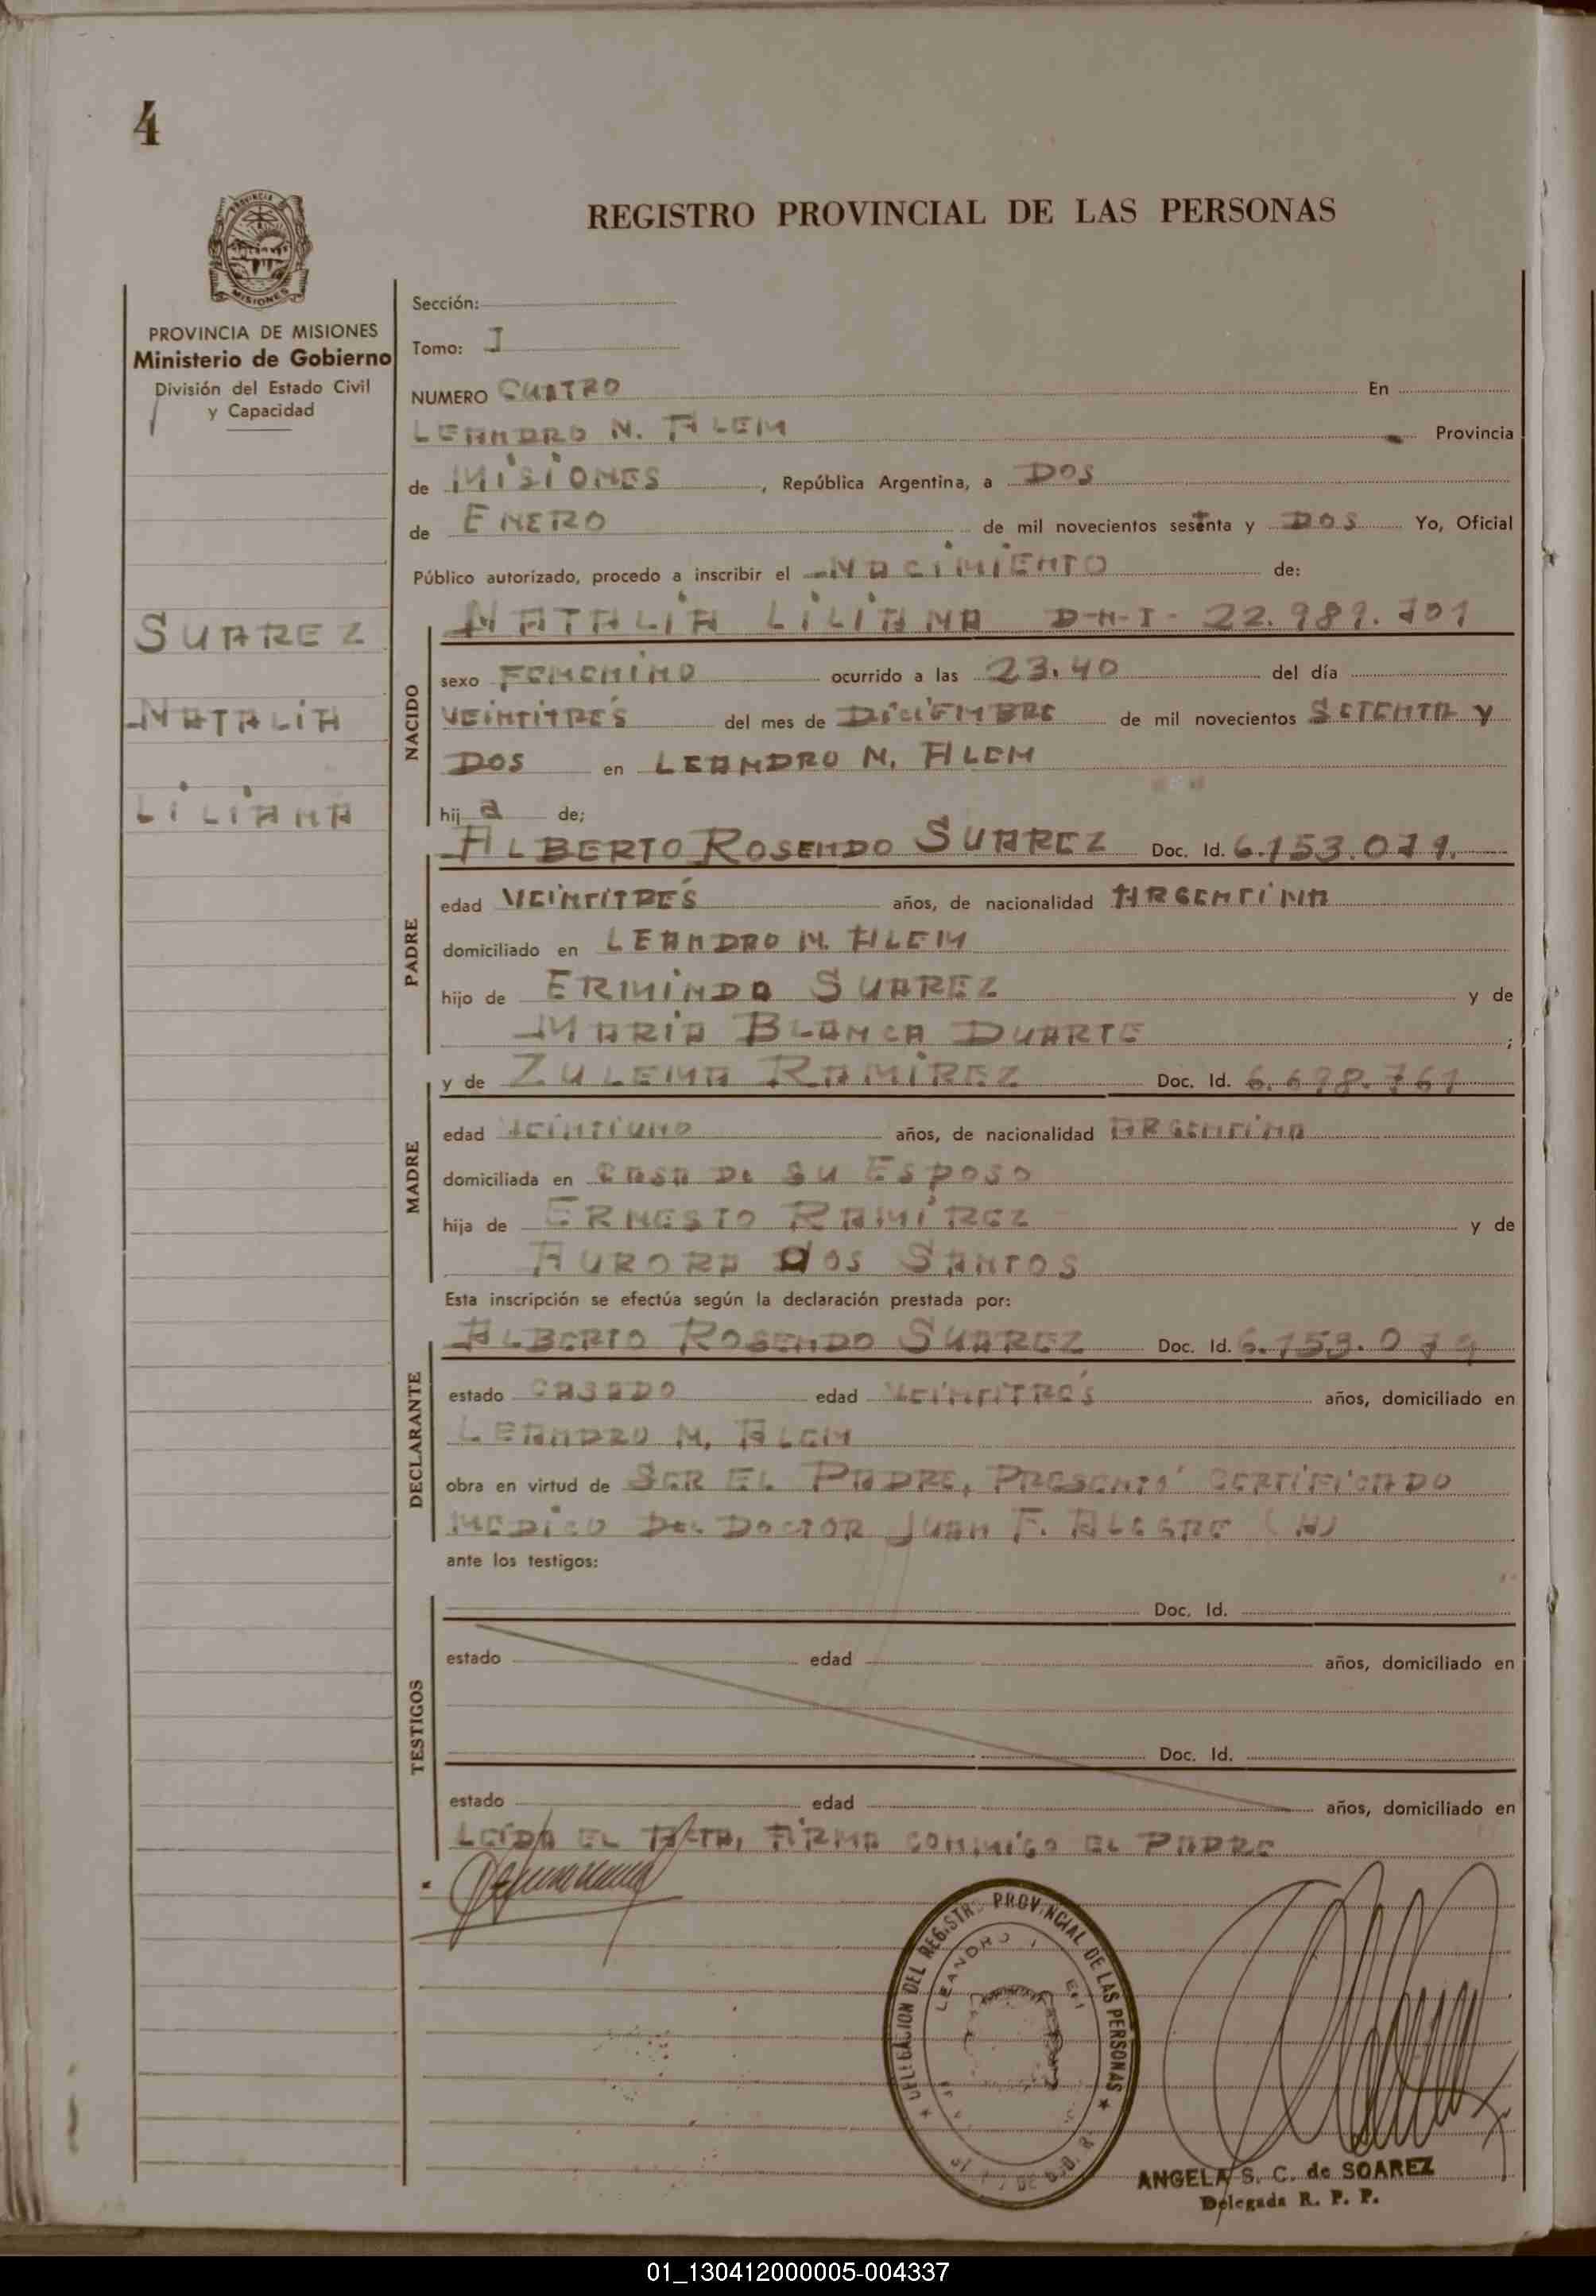 4
REGISTRO PROVINCIAL DE LAS PERSONAS
PROVINCIA
MISIONES
PROVINCIA DE MISIONES
Ministerio de Gobierno
División del Estado Civil
y Capacidad
SUAREZ
NATALIA
LILIANA
Sección:
Tomo: I
NUMERO CUATRO En
LEANDRO N. ALEM Provincia
de MISIONES, República Argentina, a DOS
de ENERO de mil novecientos sesenta y DOS Yo, Oficial
Público autorizado, procedo a inscribir el NACIMIENTO de:
NACIDO
NATALIA LILIANA D-N-I- 22.989.701
sexo FEMENINO ocurrido a las 23.40 del día
VEINTITRES del mes de DICIEMBRE de mil novecientos SETENTA Y
DOS en LEANDRO N. ALEM
hij a de;
PADRE
ALBERTO ROSENDO SUAREZ Doc. Id. 6.153.071.
edad VEINTITRÉS años, de nacionalidad ARGENTINA
domiciliado en LEANDRO N. ALEM
hijo de ERMINDO SUAREZ y de
MARIA BLANCA DUARTE ;
MADRE
y de ZULEMA RAMIREZ Doc. Id. 6.698.761
edad VEINTIUNO años, de nacionalidad ARGENTINA
domiciliada en CASA DE SU ESPOSO
hija de ERNESTO RAMÍREZ y de
AURORA DOS SANTOS
Esta inscripción se efectúa según la declaración prestada por:
DECLARANTE
ALBERTO ROSENDO SUAREZ Doc. Id. 6.153.071
estado CASADO edad VEINTITRÉS años, domiciliado en
LEANDRO N. ALEM
obra en virtud de SER EL PADRE, PRESENTÓ CERTIFICADO
MEDICO DEL DOCTOR JUAN F. ALEGRE (H)
ante los testigos:
TESTIGOS
Doc. Id.
estado edad años, domiciliado en
Doc. Id.
estado edad años, domiciliado en
LEIDA EL ACTA, FIRMA CONMIGO EL PADRE
DELEGACION DEL REGISTRO PROVINCIAL DE LAS PERSONAS
LEANDRO
ANGELA S. C. de SOAREZ
Delegada R. P. P.
01_130412000005-004337